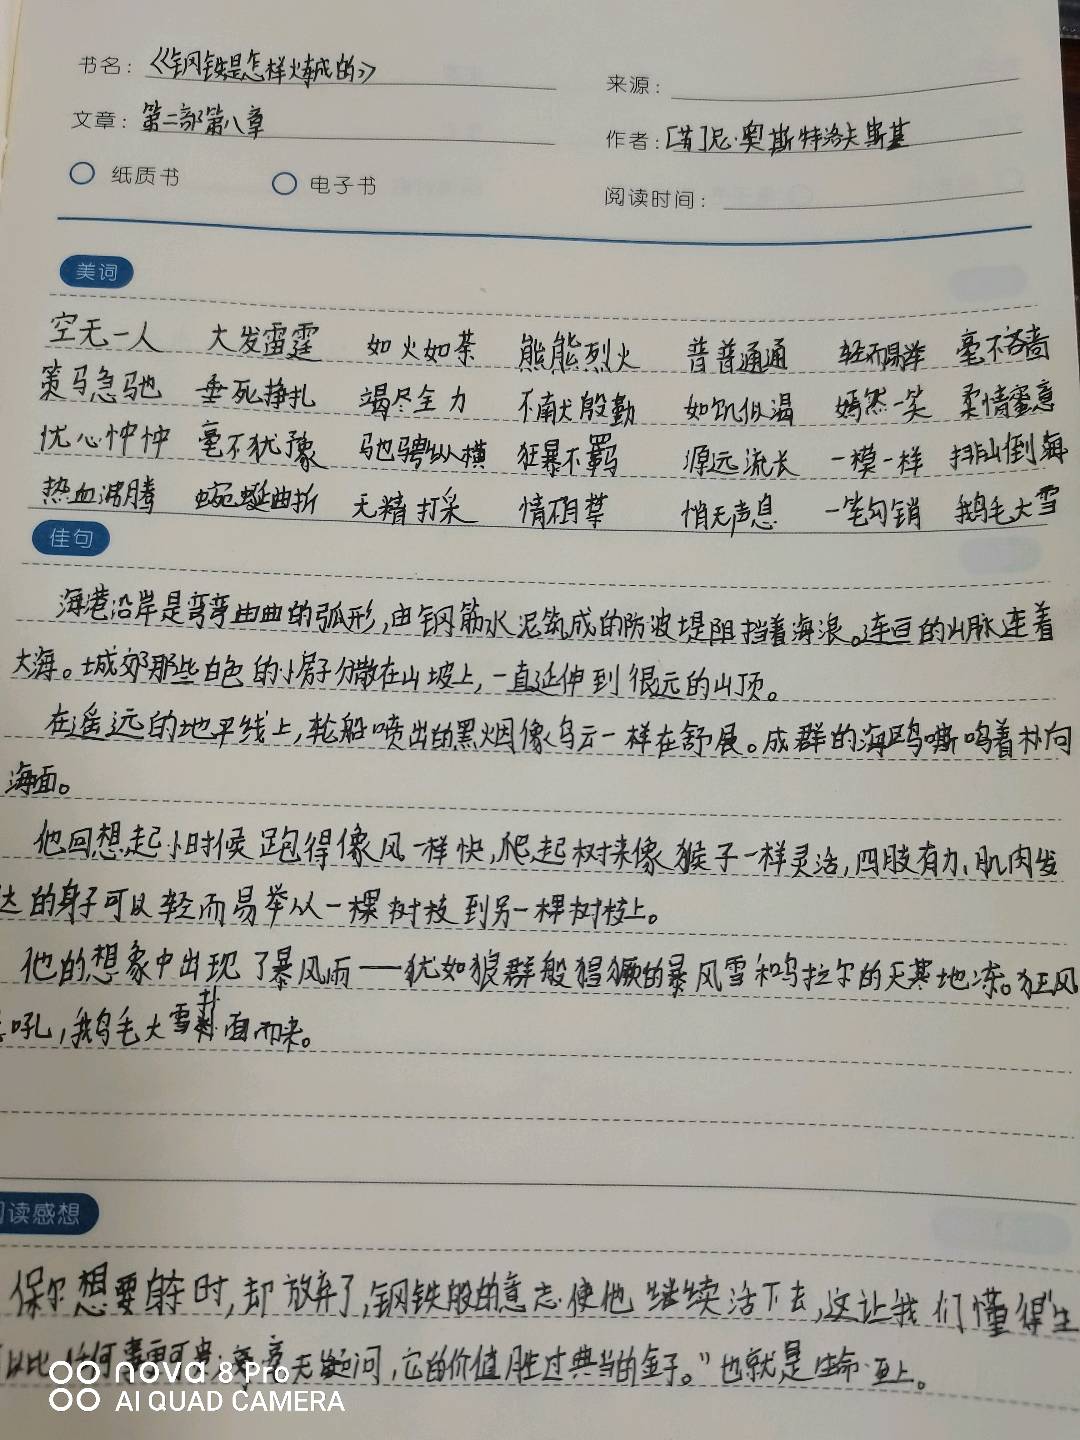 书名：《钢铁是怎样炼成的》
来源：
文章：第二部第八章
作者：[苏]尼·奥斯特洛夫斯基
纸质书 电子书
阅读时间：
美词
空无一人 大发雷霆 如火如荼 熊熊烈火 普普通通 轻而易举 毫不吝啬
策马急驰 垂死挣扎 竭尽全力 不献殷勤 如饥似渴 嫣然一笑 柔情蜜意
忧心忡忡 毫不犹豫 驰骋纵横 狂暴不羁 源远流长 一模一样 排山倒海
热血沸腾 蜿蜒曲折 无精打采 情不自禁 悄无声息 一笔勾销 鹅毛大雪
佳句
海港沿岸是弯弯曲曲的弧形，由钢筋水泥筑成的防波堤阻挡着海浪。连亘的山脉连着
大海。城郊那些白色的小房子分散在山坡上，一直延伸到很远的山顶。
在遥远的地平线上，轮船喷出的黑烟像乌云一样在舒展。成群的海鸥嘶鸣着扑向
海面。
他回想起小时候跑得像风一样快，爬起树来像猴子一样灵活，四肢有力、肌肉发
达的身子可以轻而易举从一棵树枝到另一棵树枝上。
他的想象中出现了暴风雨——犹如狼群般猖獗的暴风雪和乌拉尔的天寒地冻。狂风
吼，鹅毛大雪扑面而来。
读感想
保尔想要自杀时，却放弃了，钢铁般的意志使他继续活下去，这让我们懂得“生
以比任何事更可贵；毫无疑问，它的价值胜过典当的金子。”也就是生命至上。
nova 8 Pro
AI QUAD CAMERA